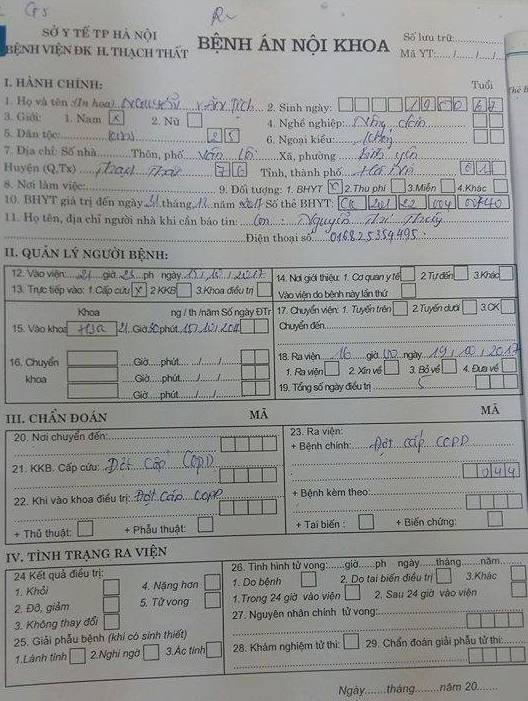 SỞ Y TẾ TP HÀ NỘI
BỆNH VIỆN ĐK H. THẠCH THẤT
BỆNH ÁN NỘI KHOA
Số lưu trữ:
Mã YT:...../...../...../
I. HÀNH CHÍNH:
Tuổi
1. Họ và tên (In hoa) NGUYỄN VĂN TỊCH 2. Sinh ngày: 1950 67
3. Giới: 1. Nam X 2. Nữ 4. Nghề nghiệp:
5. Dân tộc: Kinh 25 6. Ngoại kiều: Không
7. Địa chỉ: Số nhà Thôn, phố Xã, phường Bình Yên
Huyện (Q,Tx) Thạch Thất Tỉnh, thành phố Hà Nội
8. Nơi làm việc: 9. Đối tượng: 1. BHYT X 2.Thu phí 3.Miễn 4.Khác
10. BHYT giá trị đến ngày 31 tháng 12 năm 2017 Số thẻ BHYT:
11. Họ tên, địa chỉ người nhà khi cần báo tin: Con: Nguyễn Thị
Điện thoại số 016825354495
II. QUẢN LÝ NGƯỜI BỆNH:
12. Vào viện: 21 giờ 25 ph ngày 15/10/2017
13. Trực tiếp vào: 1.Cấp cứu X 2 KKB 3.Khoa điều trị
14. Nơi giới thiệu: 1. Cơ quan y tế 2.Tự đến 3.Khác
Vào viện do bệnh này lần thứ
Khoa ng / th /năm Số ngày ĐTr
15. Vào khoa 21 Giờ 30 phút 15/10/2017
16. Chuyển khoa Giờ.....phút...../...../.....
Giờ.....phút...../...../.....
Giờ.....phút...../...../.....
17. Chuyển viện: 1. Tuyến trên 2.Tuyến dưới 3.CK
Chuyển đến
18. Ra viện 16 giờ 00 ngày 19/10/2017
1. Ra viện 2. Xin về 3. Bỏ về 4. Đưa về
19. Tổng số ngày điều trị 5
III. CHẨN ĐOÁN
MÃ
MÃ
20. Nơi chuyển đến:
21. KKB. Cấp cứu: Đợt cấp COPD
22. Khi vào khoa điều trị: Đợt cấp COPD
+ Thủ thuật: + Phẫu thuật:
23. Ra viện:
+ Bệnh chính: Đợt cấp COPD
J44
+ Bệnh kèm theo:
+ Tai biến : + Biến chứng:
IV. TÌNH TRẠNG RA VIỆN
24 Kết quả điều trị:
1. Khỏi 4. Nặng hơn
2. Đỡ, giảm 5. Tử vong
3. Không thay đổi
25. Giải phẫu bệnh (khi có sinh thiết)
1.Lành tính 2.Nghi ngờ 3.Ác tính
26. Tình hình tử vong:......giờ......ph ngày......tháng......năm......
1. Do bệnh 2. Do tai biến điều trị 3.Khác
1.Trong 24 giờ vào viện 2. Sau 24 giờ vào viện
27. Nguyên nhân chính tử vong:
28. Khám nghiệm tử thi: 29. Chẩn đoán giải phẫu tử thi:
Ngày.......tháng........năm 20.......